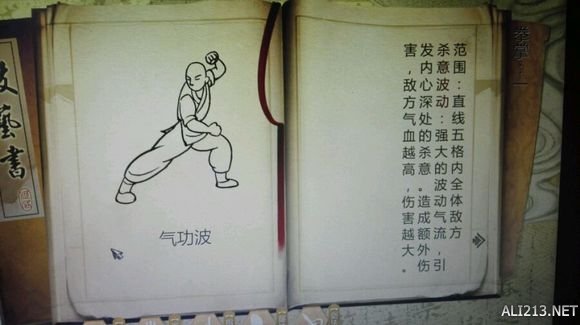 拳掌
范围：直线五格内全体敌方
杀意波动：强大的波动气流，引
发内心深处的杀意。造成额外伤
害，敌方气血越高，伤害越大。
气功波
技藝書
ALI213.NET